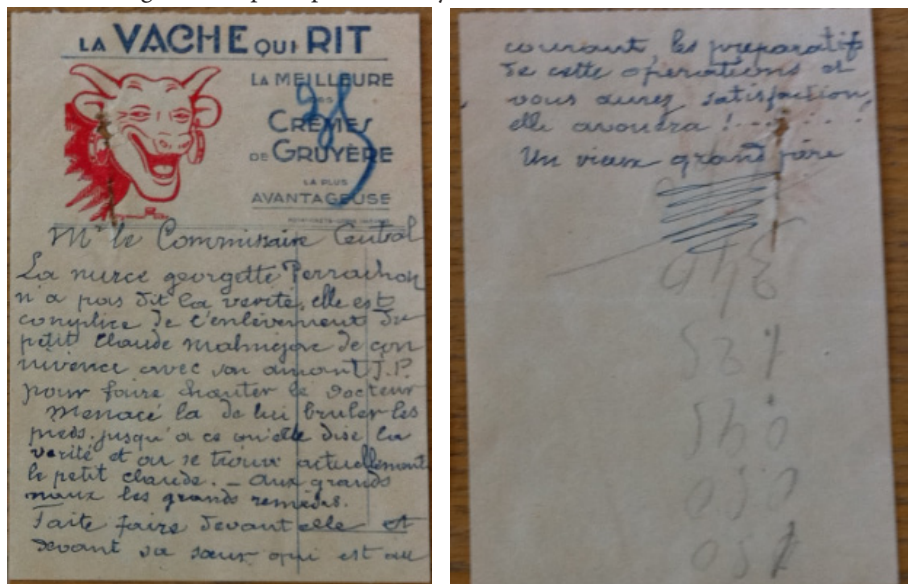 LA VACHE QUI RIT
LA MEILLEURE
DES
CRÈMES
DE GRUYÈRE
LA PLUS
AVANTAGEUSE
Mr le Commissaire Central
La nurce georgette Perrachon
n'a pas dit la verité, elle est
complice de l'enlèvement du
petit Claude malmejac de con
nivence avec son amant J.P.
pour faire chanter le docteur
Menacé la de lui bruler les
pieds jusqu'a ce qu'elle dise la
verité et ou se trouve actuellement
le petit claude. _ aux grands
maux les grands remèdes.
Faite faire devant elle et
devant sa sœur qui est au
courant, les preparatifs
de cette operations et
vous aurez satisfaction,
elle avouera !......
Un vieux grand père